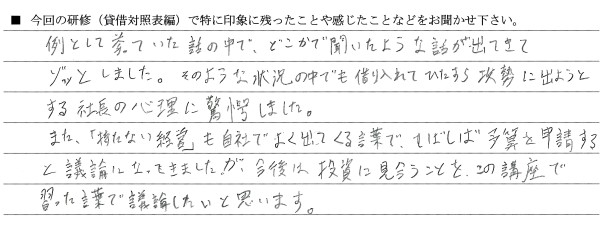 ■ 今回の研修（貸借対照表編）で特に印象に残ったことや感じたことなどをお聞かせ下さい。
例として挙っていた話の中で、どこかで聞いたような話が出てきて
ゾッとしました。そのような状況の中でも借り入れてひたすら攻勢に出ようと
する社長の心理に驚愕しました。
また、「持たない経営」も自社でよく出てくる言葉で、しばしば予算を申請する
と議論になってきましたが、今後は投資に見合うことを、この講座で
習った言葉で議論したいと思います。